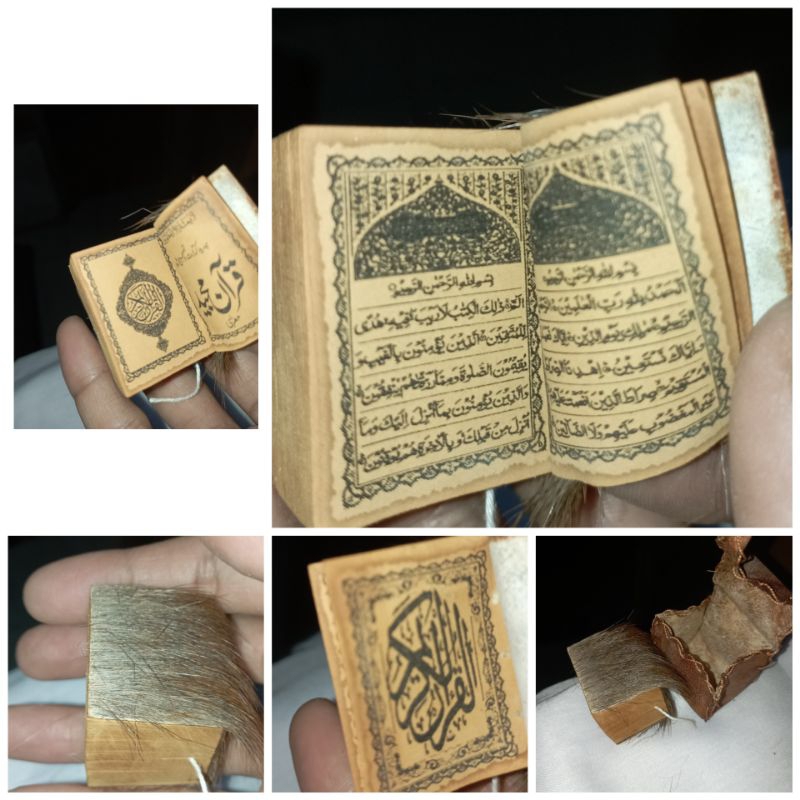 قرآن مجید
بِسْمِ اللهِ الرَّحْمٰنِ الرَّحِيمِ
اَلْحَمْدُ لِلّٰهِ رَبِّ الْعٰلَمِينَ
الرَّحِيمِ مٰلِكِ يَوْمِ الدِّينِ اِيَّاكَ
وَاِيَّاكَ نَسْتَعِينُ اِهْدِنَا الصِّرَاطَ
الْمُسْتَقِيمَ صِرَاطَ الَّذِينَ اَنْعَمْتَ
غَيْرِ الْمَغْضُوبِ عَلَيْهِمْ وَلَا الضَّالِّينَ
بِسْمِ اللهِ الرَّحْمٰنِ الرَّحِيمِ
الٓمٓ ذٰلِكَ الْكِتٰبُ لَا رَيْبَ فِيهِ هُدًى
لِلْمُتَّقِينَ الَّذِينَ يُؤْمِنُونَ بِالْغَيْبِ وَ
يُقِيمُونَ الصَّلٰوةَ وَمِمَّا رَزَقْنٰهُمْ يُنْفِقُونَ
وَالَّذِينَ يُؤْمِنُونَ بِمَا اُنْزِلَ اِلَيْكَ وَمَا
اُنْزِلَ مِنْ قَبْلِكَ وَبِالْاٰخِرَةِ هُمْ يُوقِنُونَ
القرآن الكريم